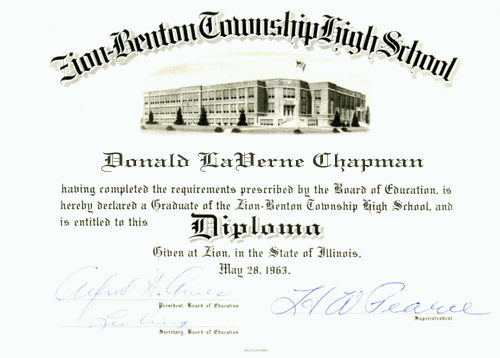 Zion-Benton Township High School
Donald LaVerne Chapman
having completed the requirements prescribed by the Board of Education, is
hereby declared a Graduate of the Zion-Benton Township High School, and
is entitled to this Diploma
Given at Zion, in the State of Illinois,
May 28, 1963.
Alfred H. Ames
President, Board of Education
H W Pearce
Superintendent
Secretary, Board of Education